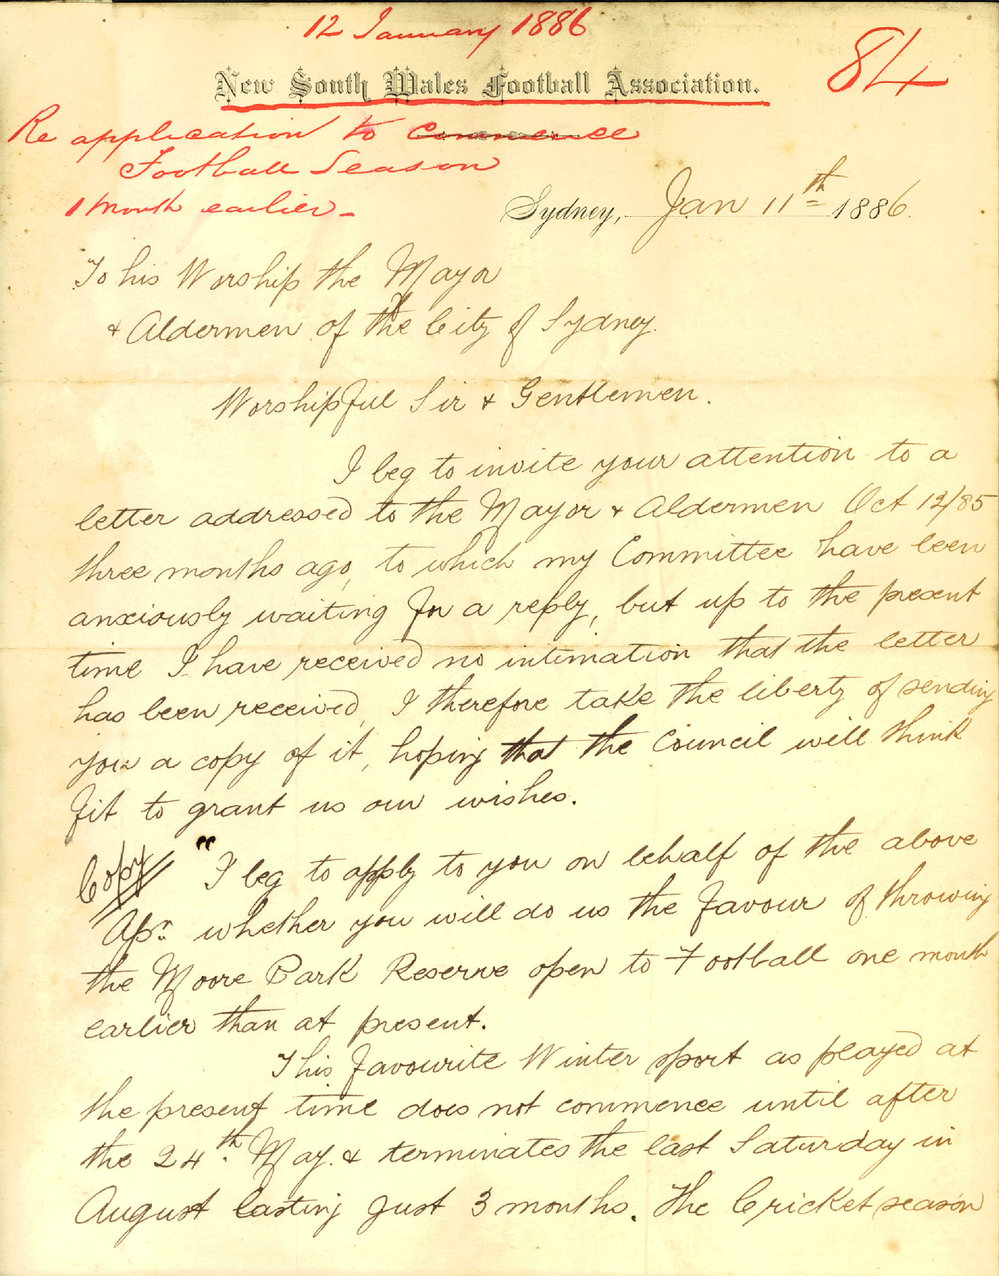 12 January 1886
84
New South Wales Football Association.
Re application to Commence
Football Season
1 Month earlier -
Sydney, Jan 11th 1886.
To his Worship the Mayor
& Aldermen of the City of Sydney.
Worshipful Sir & Gentlemen.
I beg to invite your attention to a
letter addressed to the Mayor & Aldermen Oct 12/85
three months ago, to which my Committee have been
anxiously waiting for a reply, but up to the present
time I have received no intimation that the letter
has been received, I therefore take the liberty of sending
you a copy of it, hoping that the Council will think
fit to grant us our wishes.
Copy "I beg to apply to you on behalf of the above
Assn. whether you will do us the favour of throwing
the Moore Park Reserve open to Football one month
earlier than at present.
This favourite Winter sport as played at
the present time does not commence until after
the 24th. May. & terminates the last Saturday in
August lasting just 3 months. The Cricket season